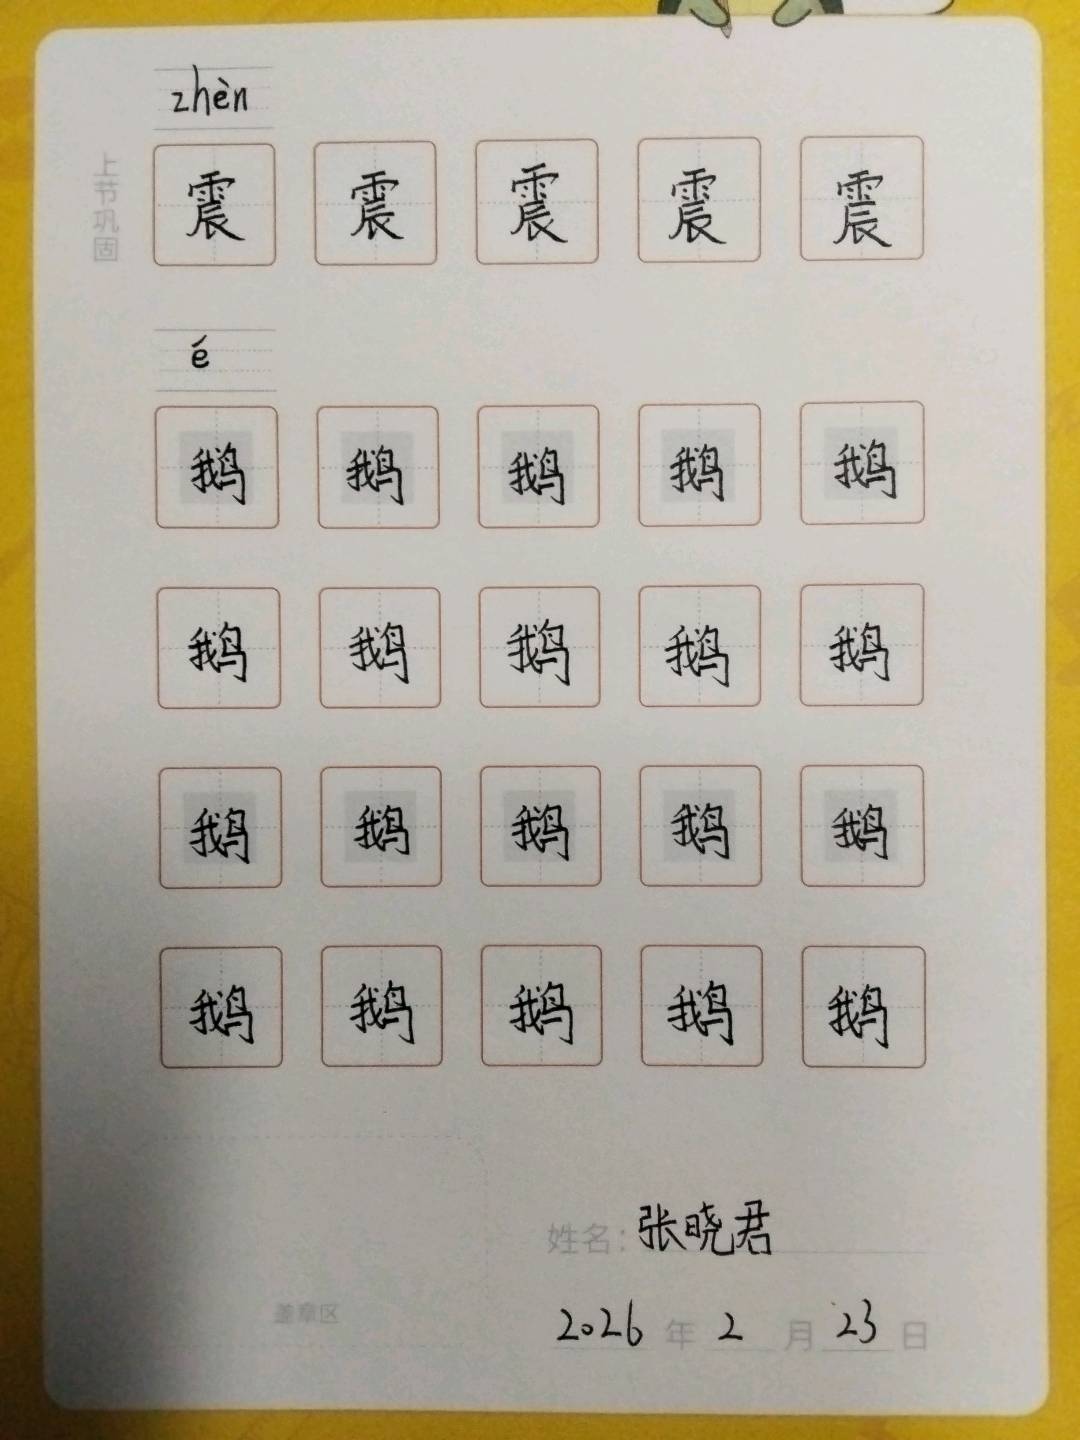 zhèn
上节巩固
震 震 震 震 震
é
鹅 鹅 鹅 鹅 鹅
鹅 鹅 鹅 鹅 鹅
鹅 鹅 鹅 鹅 鹅
鹅 鹅 鹅 鹅 鹅
姓名：张晓君
盖章区
2026年2月23日